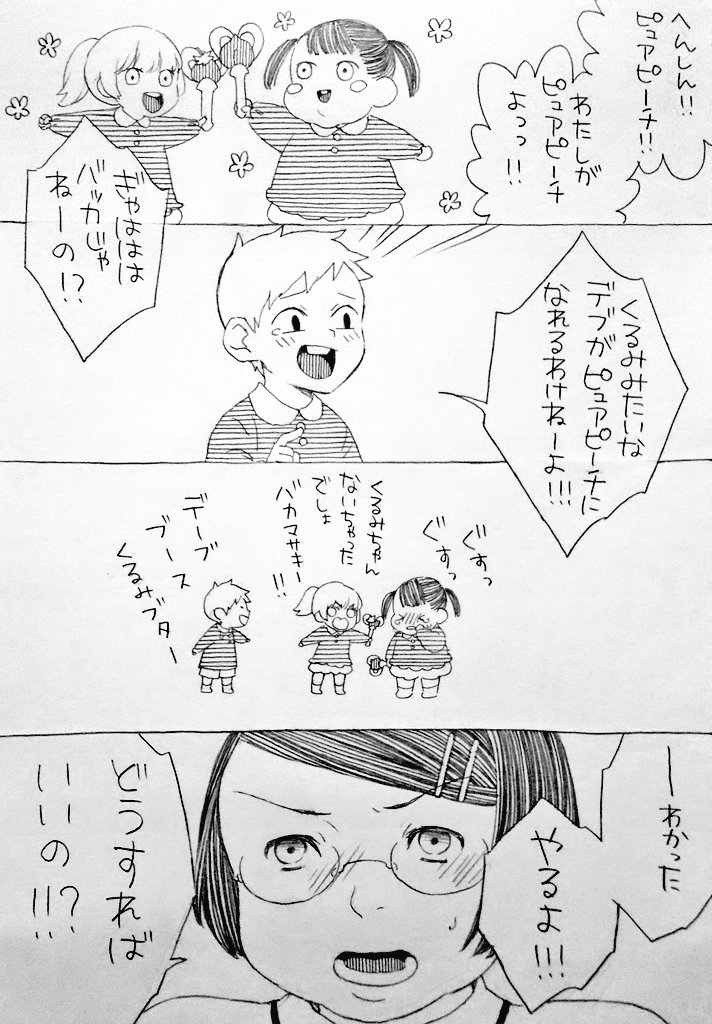 へんしん!!
ピュアピーチ!!
わたしが
ピュアピーチ
よっっ!!
ぎゃははは
バッカじゃ
ねーの!?
くるみみたいな
デブがピュアピーチに
なれるわけねーよ!!!
ぐすっ
ぐすっ
くるみちゃん
ないちゃった
でしょ
バカマサキー
!!
デーブ
ブース
くるみブター
ーわかった
やるよ!!!
どうすれば
いいの!?!!